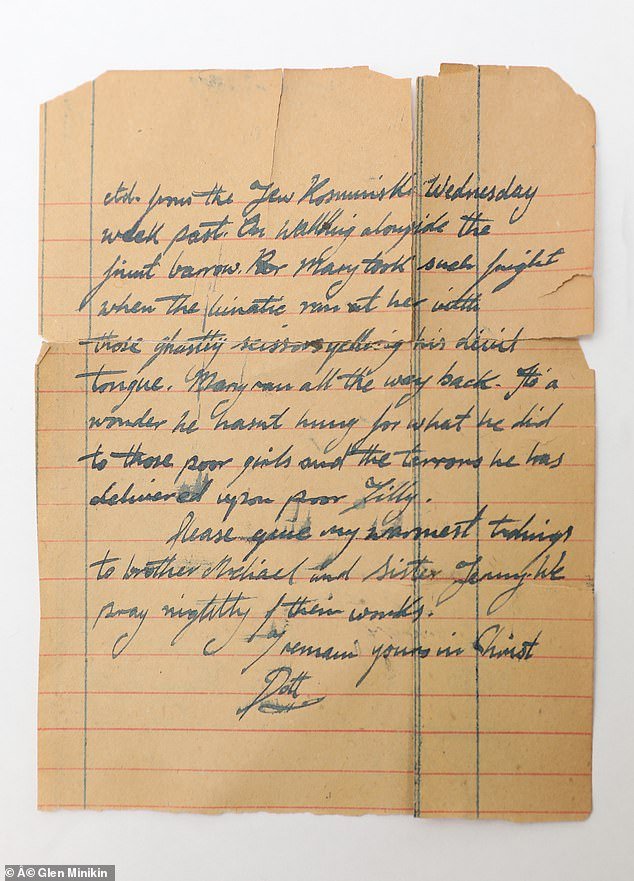 ctd. from the Jew Kosminski Wednesday
week past. On walking alongside the
fruit barrow. Mary took such fright
when the lunatic ran at her with
those ghastly scissors yelling his devil
tongue. Mary ran all the way back. It's a
wonder he hasnt hung for what he did
to those poor girls and the terrors he has
delivered upon poor Tilly.
Please give my warmest tidings
to brother Michael and sister Jenny. We
pray nightly their words.
I remain yours in Christ
Dott
© Â© Glen Minikin